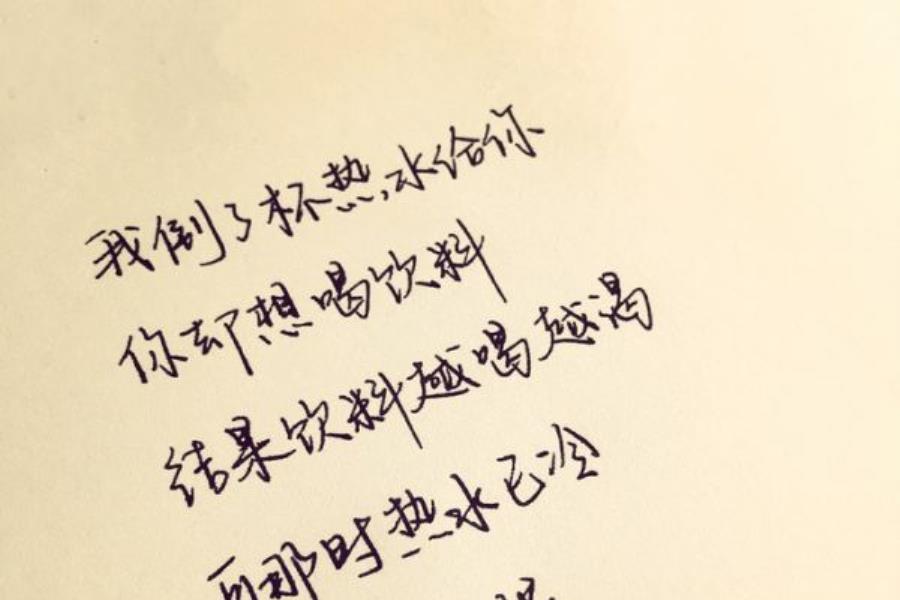 我倒了杯热水给你
你却想喝饮料
结果饮料越喝越渴
而那时热水已冷